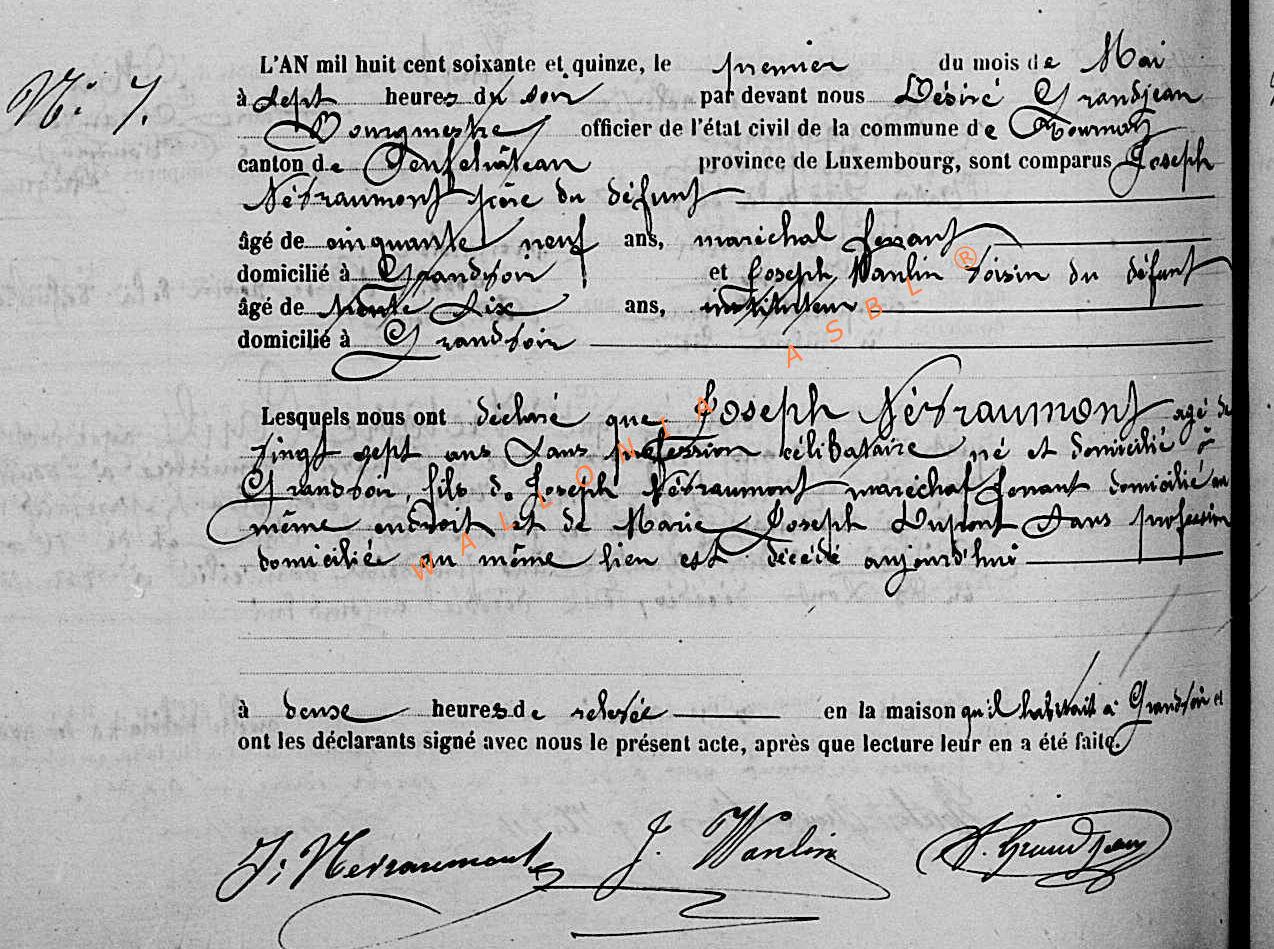 N: 7.
L'AN mil huit cent soixante et quinze, le premier du mois de Mai
à sept heures du soir par devant nous Désiré Grandjean
Bourgmestre officier de l'état civil de la commune de Tournay
canton de Neufchâteau province de Luxembourg, sont comparus Joseph
Névraumont père du défunt
âgé de cinquante neuf ans, maréchal ferrant
domicilié à Grandvoir et Joseph Wanlin voisin du défunt
âgé de trente six ans, instituteur
domicilié à Grandvoir
Lesquels nous ont déclaré que Joseph Névraumont agé de
vingt sept ans sans profession célibataire né et domicilié à
Grandvoir, fils de Joseph Névraumont maréchal ferrant domicilié au
même endroit et de Marie Joseph Dupont sans profession
domiciliée au même lieu est décédé aujourd'hui
à deuse heures de relevée en la maison qu'il habitait à Grandvoir et
ont les déclarants signé avec nous le présent acte, après que lecture leur en a été faite.
J. Nevraumont J. Wanlin D. Grandjean
WALLONIA ASBL ®